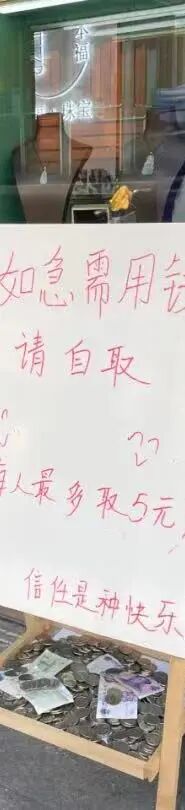 幸福
珠宝
如急需用钱
请自取
每人最多取5元
信任是种快乐